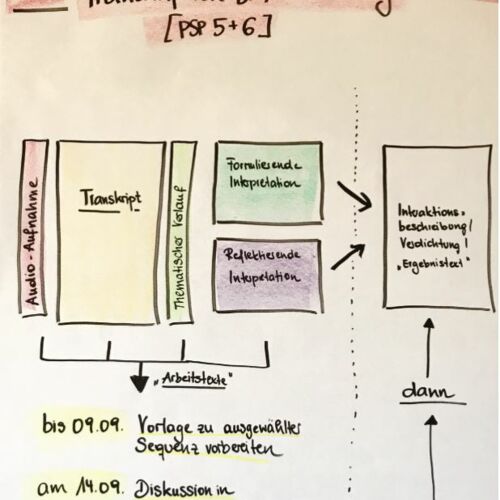 [PSP 5+6]
Audio-Aufnahme
Transkript
Thematischer Verlauf
Formulierende
Interpretation
Reflektierende
Interpretation
Interaktions-
beschreibung/
Verdichtung/
"Ergebnistext"
"Arbeitstexte"
dann
bis 09.09. Vorlage zu ausgewählter
Sequenz vorbereiten
am 14.09. Diskussion in